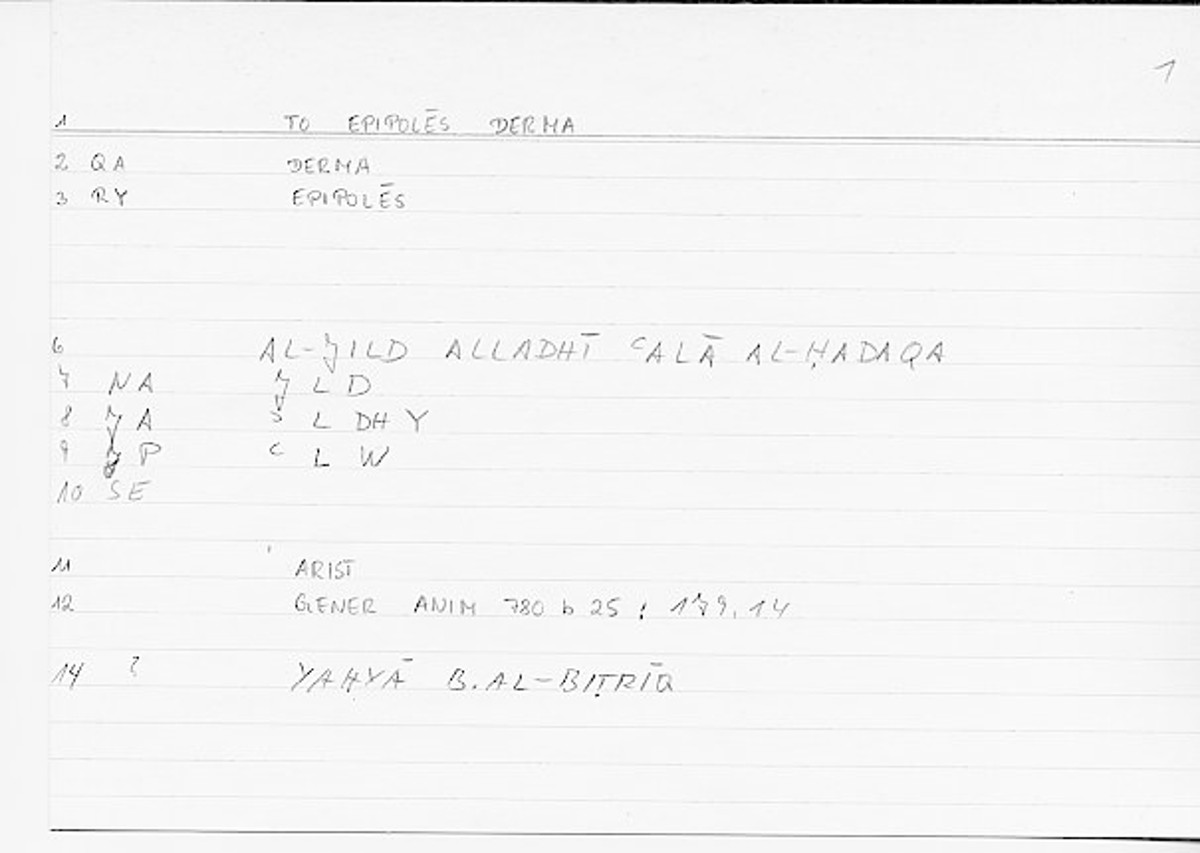 1
1 TO EPIPOLĒS DERMA
2 QA DERMA
3 RY EPIPOLĒS
6 AL-JILD ALLADHĪ ʿALĀ AL-ḤADAQA
7 NA J L D
8 JA L DH Y
9 P ʿ L W
10 SE
11 ARIST
12 GENER ANIM 780 b 25 ; 179,14
14 ? YAḤYĀ B. AL-BIṬRĪQ